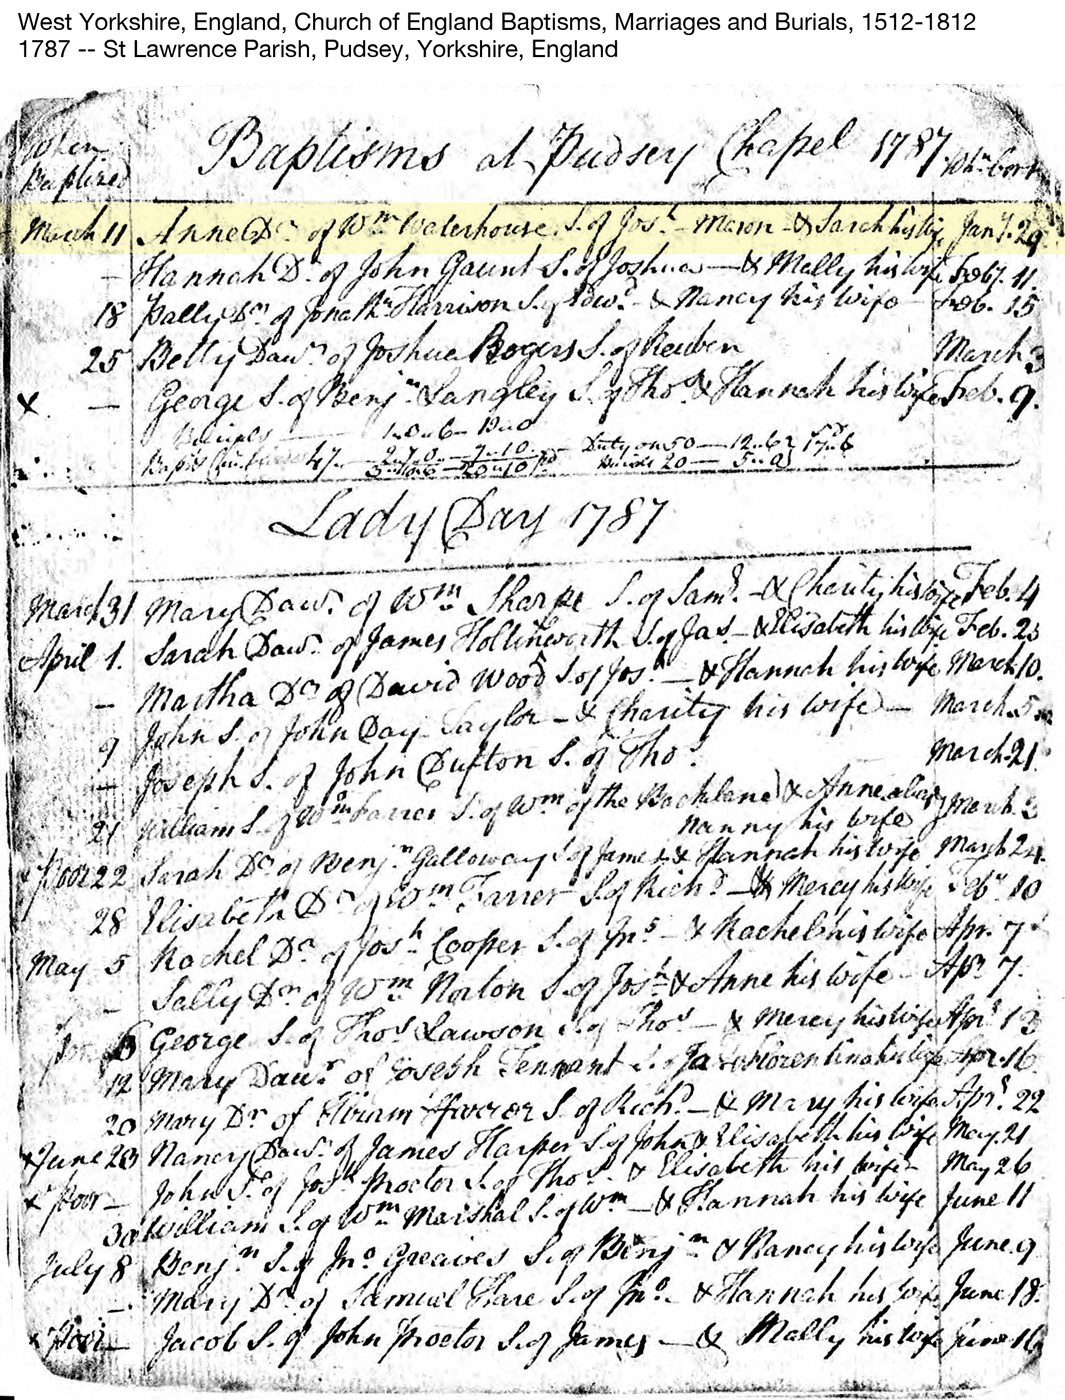 West Yorkshire, England, Church of England Baptisms, Marriages and Burials, 1512-1812
1787 -- St Lawrence Parish, Pudsey, Yorkshire, England
When Baptisms at Pudsey Chapel 1787 Wn. born
Baptized
March 11 Anne Dr. of Wm Waterhouse S. of Josh - Mason - & Sarah his wife Jany. 29
— Hannah Dr. of John Gaunt S. of Joshua — & Mally his wife Feby. 11.
18 Dr. of Jonathn Harrison S. of Edwd. - & Nancy his wife - Feb. 15
25 Betty Dawr. of Joshua Rogers S. of Reuben March 3
x — George S. of Benjn. Langley S. of Thos. & Hannah his wife Feb. 9.
1..0..6 —
47 — Duty on 50 — 12..6 17..6
20 — 5..0
Lady Day 1787
March 31 Mary Dawr. of Wm Sharpe S. of Saml. - & Charity his wife Feb. 4
April 1. Sarah Dawr. of James Hollinworth S. of Jas - & Elisabeth his wife Feb. 23
— Martha Dr. of David Wood S. of Jos. — & Hannah his wife March 10.
9 John S. of John Day Taylor - & Charity his wife — March 5
— Joseph S. of John Dufton S. of Thos. March 21.
21 William S. of Wm Farrer S. of Wm of the Backlane & Anne alias March 3
Nanny his wife
x Poor 22 Sarah Dr. of Benjn. Galloway S. of James & Hannah his wife March 24.
28 Elisabeth Dr. of Wm Farrer S. of Richd - & Mercy his wife Feby. 10
May 5 Rachel Dr. of Josh Cooper S. of Jno. - & Rachel his wife Apr. 7
— Sally Dr. of Wm Norton S. of Josh. & Anne his wife - Apr. 7.
6 George S. of Thos Lawson S. of Thos — & Mercy his wife Apr. 13
12 Mary Dawr. of Joseph Tennant S. of Jas & Florentina his wife Apr. 16
20 Mary Dr. of Hiram S. of Richd. — & Mary his wife Apr. 22
x June 23 Nancy Dawr. of James Harper S. of John & Elisabeth his wife May 21
x Poor — John S. of Josh Proctor S. of Thos. & Elisabeth his wife - May 26
30 William S. of Wm Marshal S. of Wm — & Hannah his wife June 11
July 8 Benjn S. of Jno Greaves S. of Benjn & Nancy his wife June. 9
— Mary Dr. of Samuel Hare S. of Jno. — & Hannah his wife June 18.
x Poor — Jacob S. of John Proctor S. of James — & Mally his wife June 16